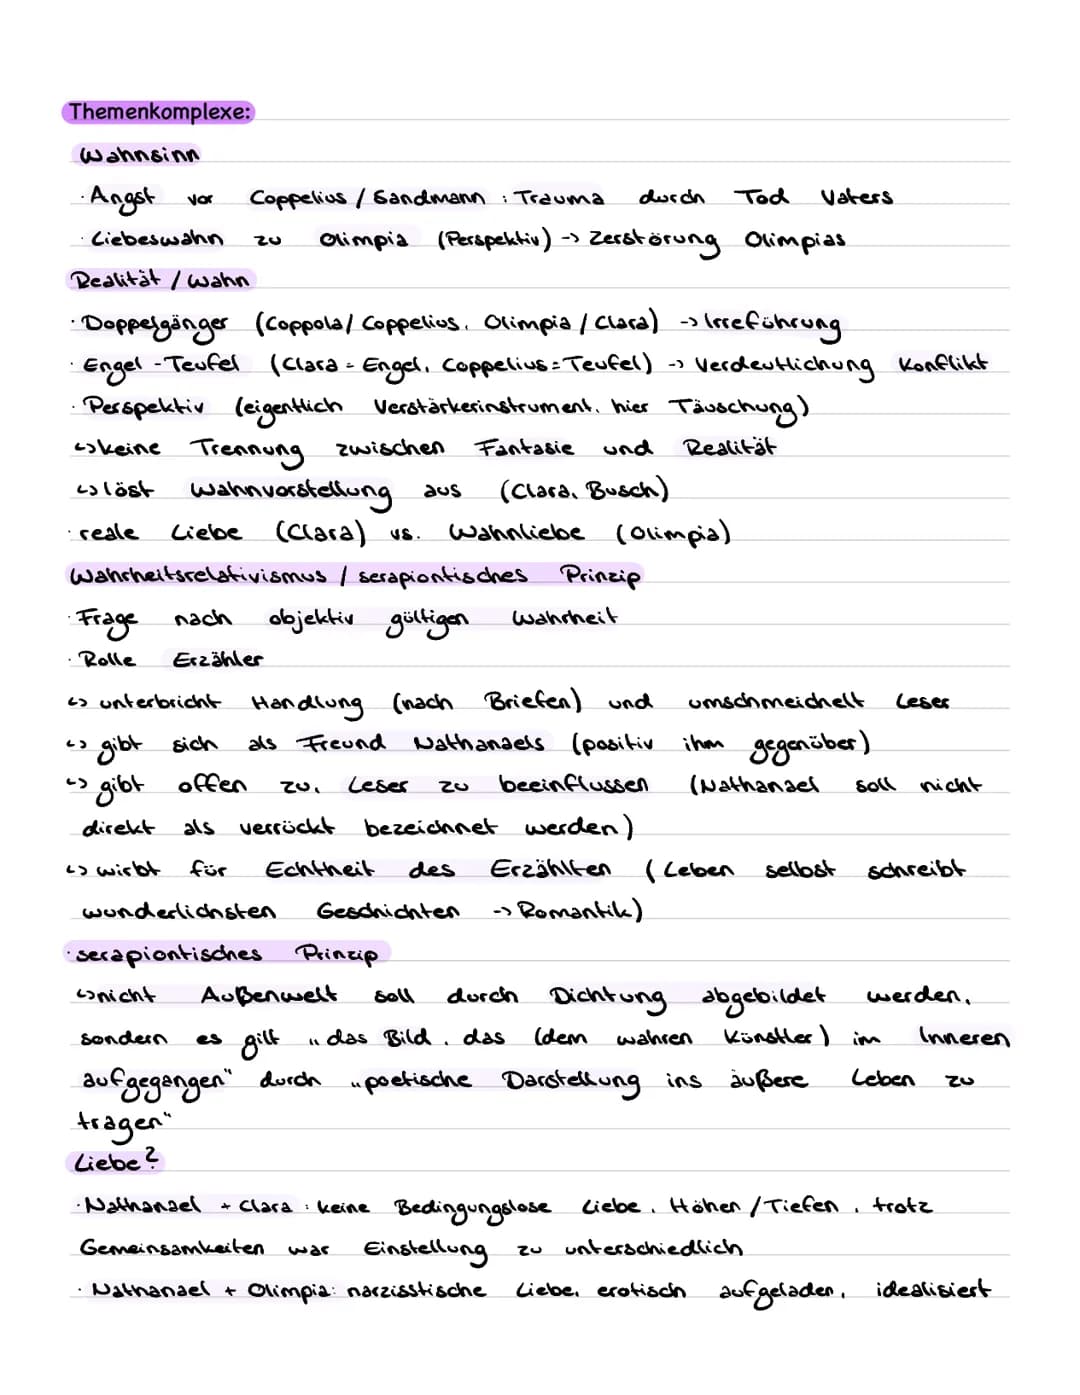 Themenkomplexe:
Wahnsinn
· Angst vor Coppelius / Sandmann : Trauma durch Tod Vaters
· Liebeswahn zu Olimpia (Perspektiv) -> Zerstörung Olimpias
Realität / Wahn
· Doppelgänger (Coppola / Coppelius, Olimpia / Clara) -> Irreführung
· Engel - Teufel (Clara = Engel, Coppelius = Teufel) -> Verdeutlichung Konflikt
· Perspektiv (eigentlich Verstärkerinstrument, hier Täuschung)
↳ keine Trennung zwischen Fantasie und Realität
↳ löst Wahnvorstellung aus (Clara, Busch)
· reale Liebe (Clara) vs. Wahnliebe (Olimpia)
Wahrheitsrelativismus / serapiontisches Prinzip
· Frage nach objektiv gültigen Wahrheit
· Rolle Erzähler
↳ unterbricht Handlung (nach Briefen) und umschmeichelt Leser
↳ gibt sich als Freund Nathanaels (positiv ihm gegenüber)
↳ gibt offen zu, Leser zu beeinflussen (Nathanael soll nicht
direkt als verrückt bezeichnet werden)
↳ wirbt für Echtheit des Erzählten (Leben selbst schreibt
wunderlichsten Geschichten -> Romantik)
· serapiontisches Prinzip
↳ nicht Außenwelt soll durch Dichtung abgebildet werden,
sondern es gilt „das Bild, das (dem wahren Künstler) im Inneren
aufgegangen" durch „poetische Darstellung ins äußere Leben zu
tragen"
Liebe?
· Nathanael + Clara : keine Bedingungslose Liebe, Höhen / Tiefen, trotz
Gemeinsamkeiten war Einstellung zu unterschiedlich
· Nathanael + Olimpia: narzisstische Liebe, erotisch aufgeladen, idealisiert